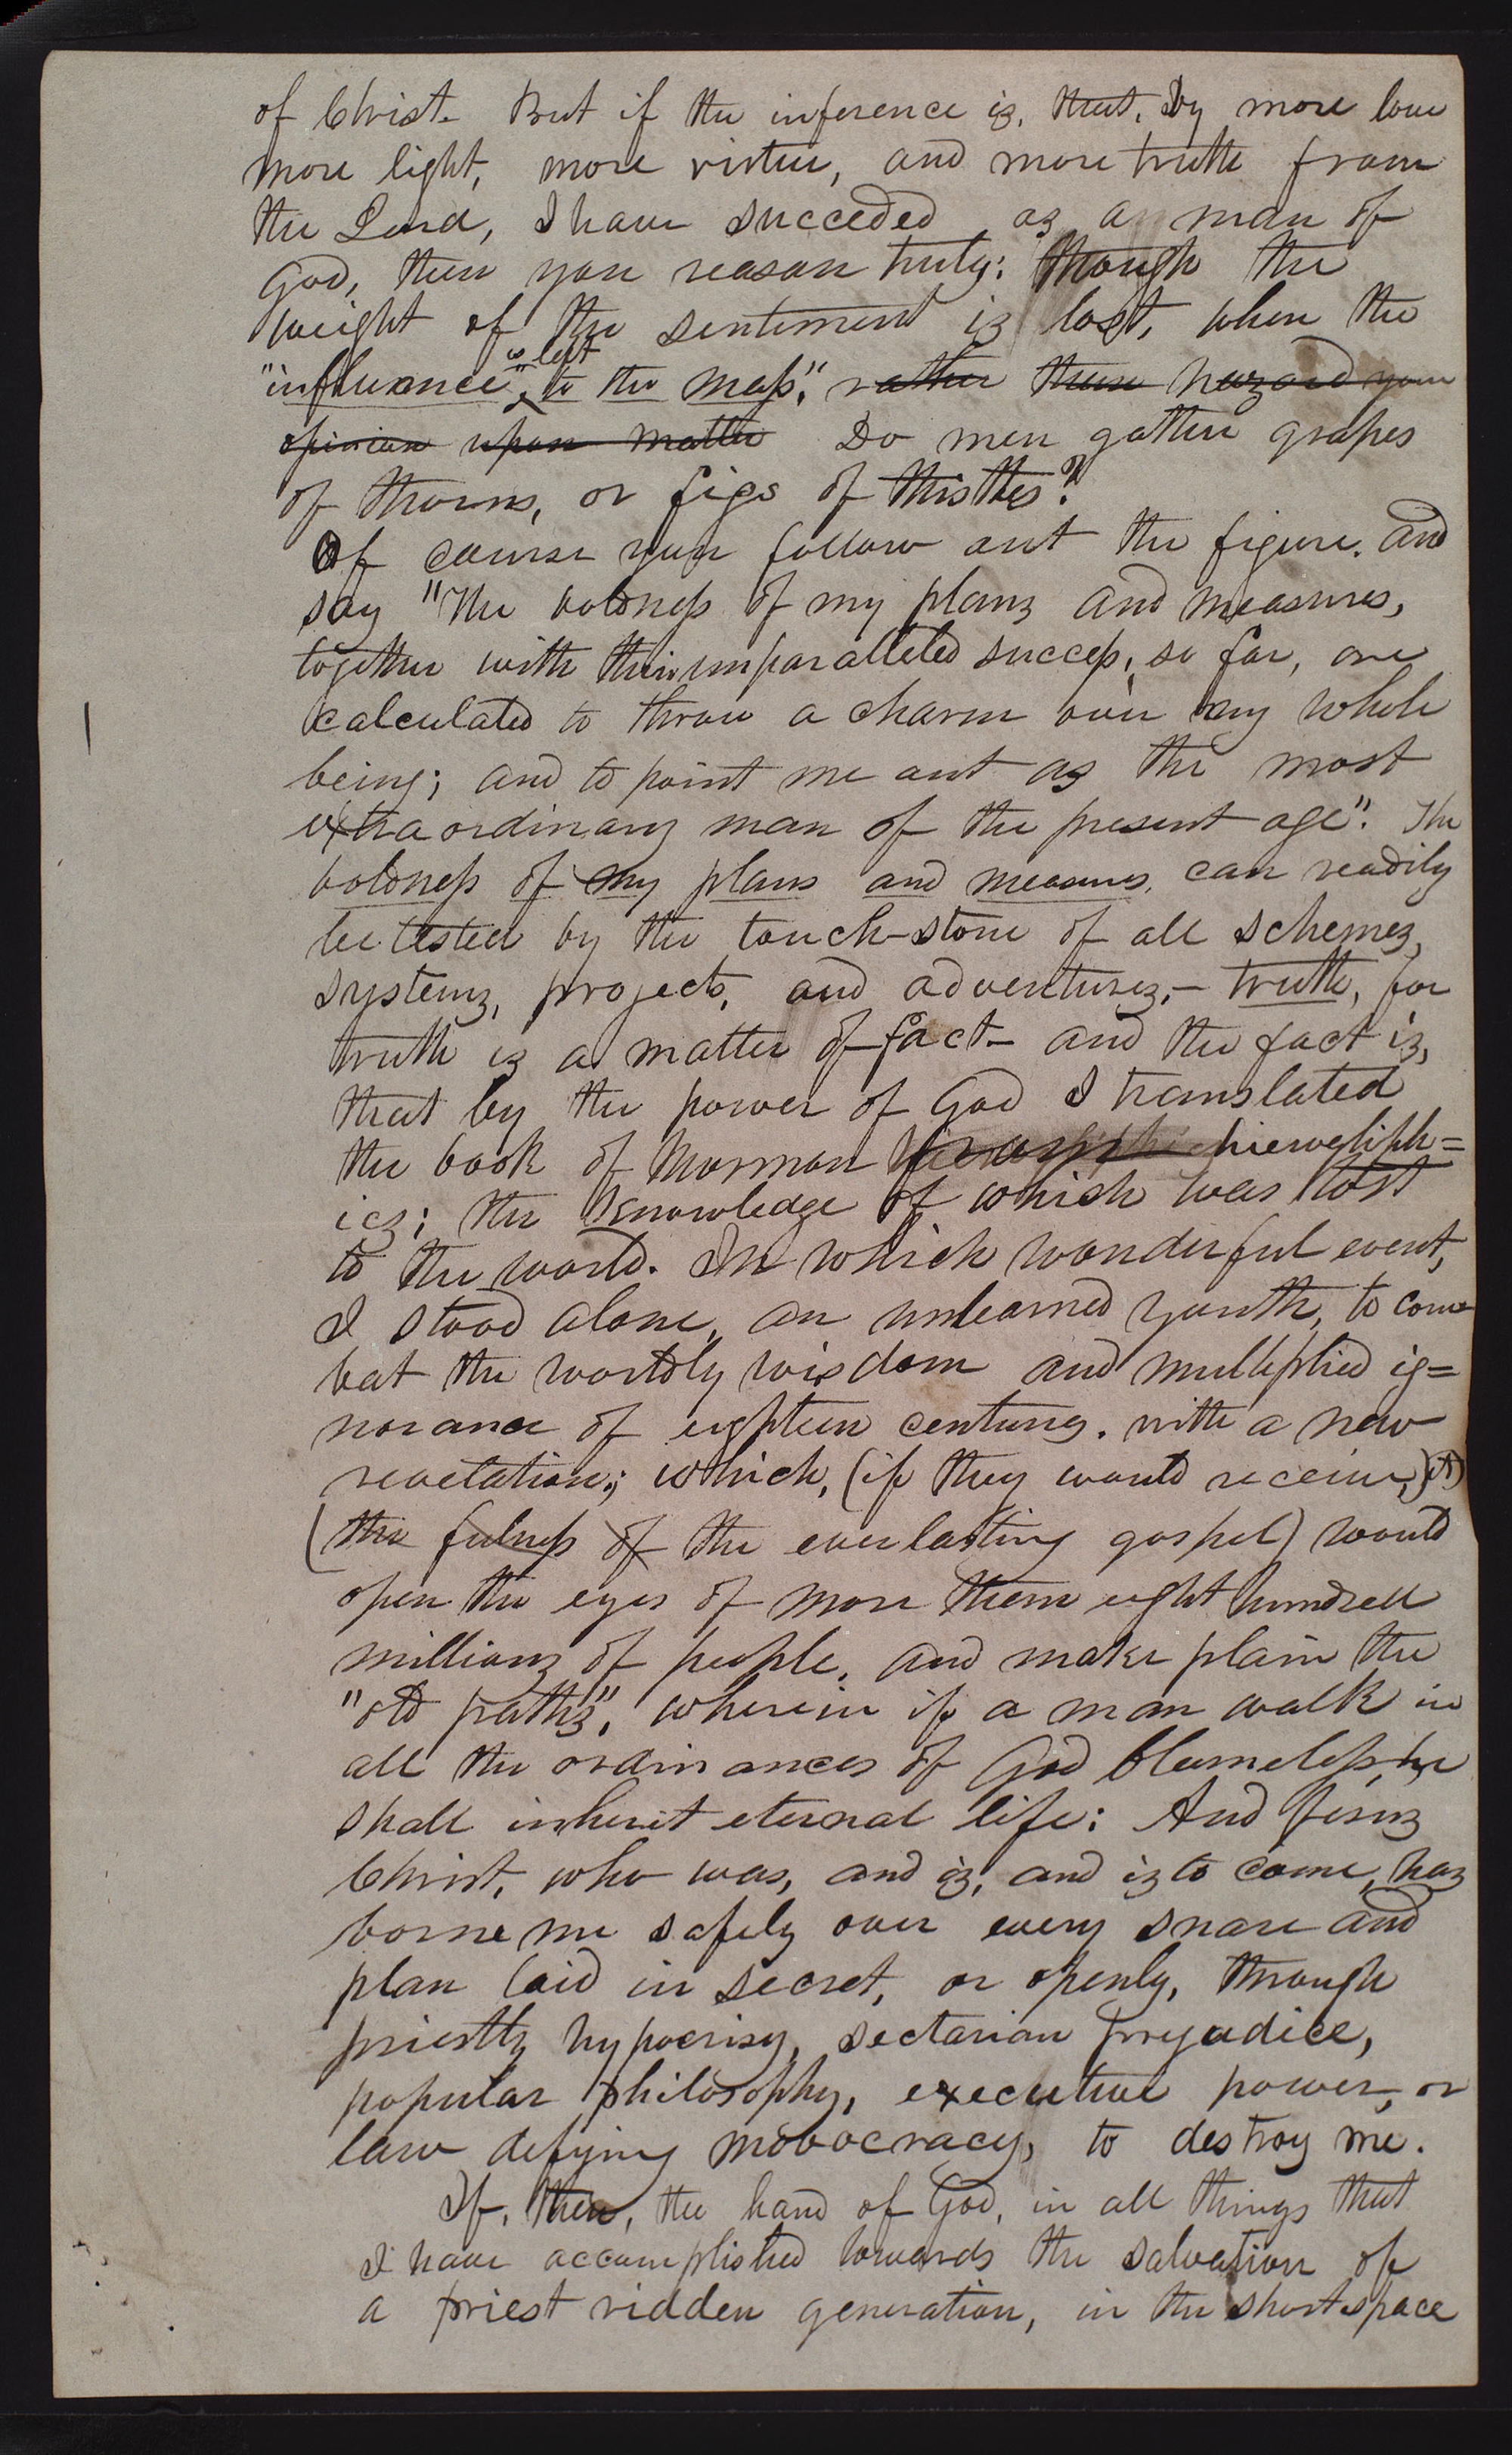 of Christ. But if the inference is, that, by more love
more light, more virtue, and more truth from
the Lord, I have succeded as a man of
God, then you reason truly: though the
weight of the sentiment is lost, when the
"influence" is left to the mass". rather than hazard your
opinion upon matter Do men gather grapes
of thorns, or figs of thistles?
Of course you follow out the figure. and
say "The boldness of my plans and measures,
together with their unparalleled success, so far, are
calculated to throw a charm over my whole
being; and to point me out as the most
extraordinary man of the present age". The
boldness of my plans and measures, can readily
be tested by the touch-stone of all schemes,
systems, projects, and adventures,- truth, for
truth is a matter of fact- and the fact is,
that by the power of God I translated
the book of Mormon hierogliph=
ics; the knowledge of which was lost
to the world. In which wonderful event,
I stood alone, an unlearned youth, to com
bat the worldly wisdom and multiplied ig=
norance of eighteen centuries. with a new
revelation; which, (if they would receive,) it)
(the fulness of the everlasting gospel) would
open the eyes of more than eight hundred
millions of people, and make plain the
"old paths", wherein if a man walk in
all the ordinances of God blameless, he
shall inherit eternal life: And Jesus
Christ, who was, and is, and is to come, has
borne me safely over every snare and
plan laid in secret, or openly, through
priestly hypocrisy, sectarian prejudice,
popular philosophy, executive power, or
law defying mobocracy, to destroy me.
If, then, the hand of God, in all things that
I have accomplished towards the salvation of
a priest ridden generation, in the short space